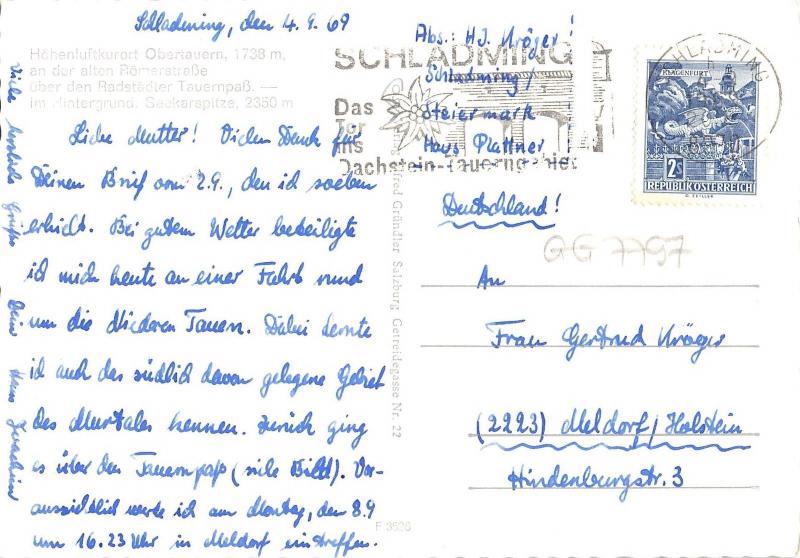 Schladming, den 4.9.69
Höhenluftkurort Obertauern, 1738 m,
an der alten Römerstraße
über den Radstädter Tauernpaß. —
im Hintergrund. Seekarspitze, 2350 m
Liebe Mutter! Vielen Dank für
Deinen Brief vom 2.9., den ich soeben
erhielt. Bei gutem Wetter beteiligte
ich mich heute an einer Fahrt rund
um die Niederen Tauern. Dabei lernte
ich auch das südlich davon gelegene Gebiet
des Murtales kennen. Zurück ging
es über den Tauernpaß (siehe Bild). Vor-
aussichtlich werde ich am Montag, den 8.9
um 16.23 Uhr in Meldorf eintreffen.
Viele herzliche Grüße Dein Hans Joachim
Abs.: HJ. Kröger!
Schladming/
Steiermark
Haus Plattner!
SCHLADMING
Das
Tor
ins
Dachstein-Tauerngebiet
SCHLADMING
KLAGENFURT
2S
REPUBLIK ÖSTERREICH
Deutschland!
GG 7797
An
Frau Gertrud Kröger
(2223) Meldorf/Holstein
Hindenburgstr. 3
Alfred Gründler Salzburg Getreidegasse Nr. 22
F 3526